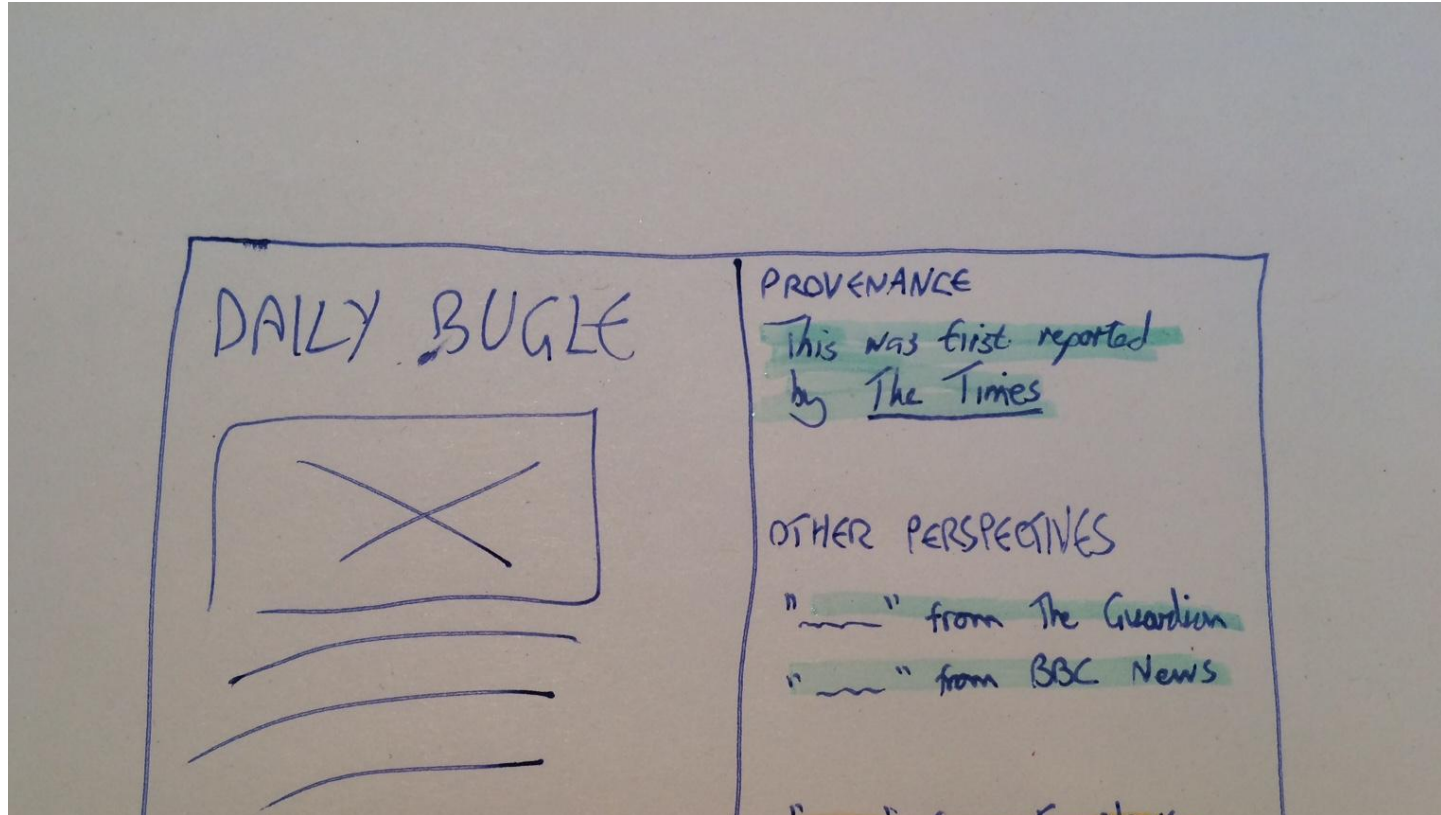 DAILY BUGLE
PROVENANCE
This was first reported
by The Times
OTHER PERSPECTIVES
" " from The Guardian
" " from BBC News